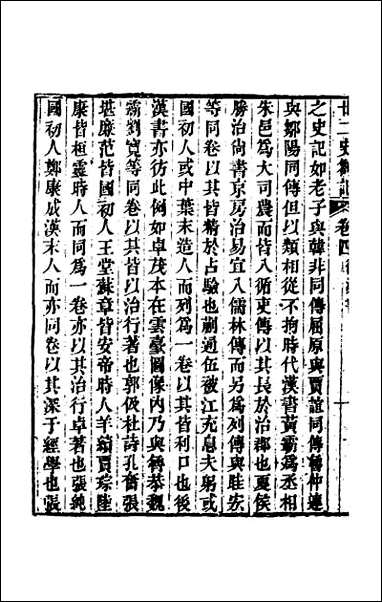 廿二史劄記 卷四 後漢書
之史記如老子與韓非同傳屈原與賈誼同傳魯仲連
與鄒陽同傳但以類相從不拘時代漢書黃霸爲丞相
朱邑爲大司農而皆入循吏傳以其長於治郡也夏侯
勝治尙書京房治易宜入儒林傳而另爲列傳與眭安
等同卷以其皆精於占驗也蒯通伍被江充息夫躬或
國初人或中葉末造人而列爲一卷以其皆利口也後
漢書亦彷此例如卓茂本在雲臺圖像內乃與魯恭魏
霸劉寬等同卷以其皆以治行著也郭伋杜詩孔奮張
堪廉范皆國初人王堂蘇章皆安帝時人羊續賈琮陸
康皆桓靈時人而同爲一卷亦以其治行卓著也張純
國初人鄭康成漢末人而亦同卷以其深于經學也張